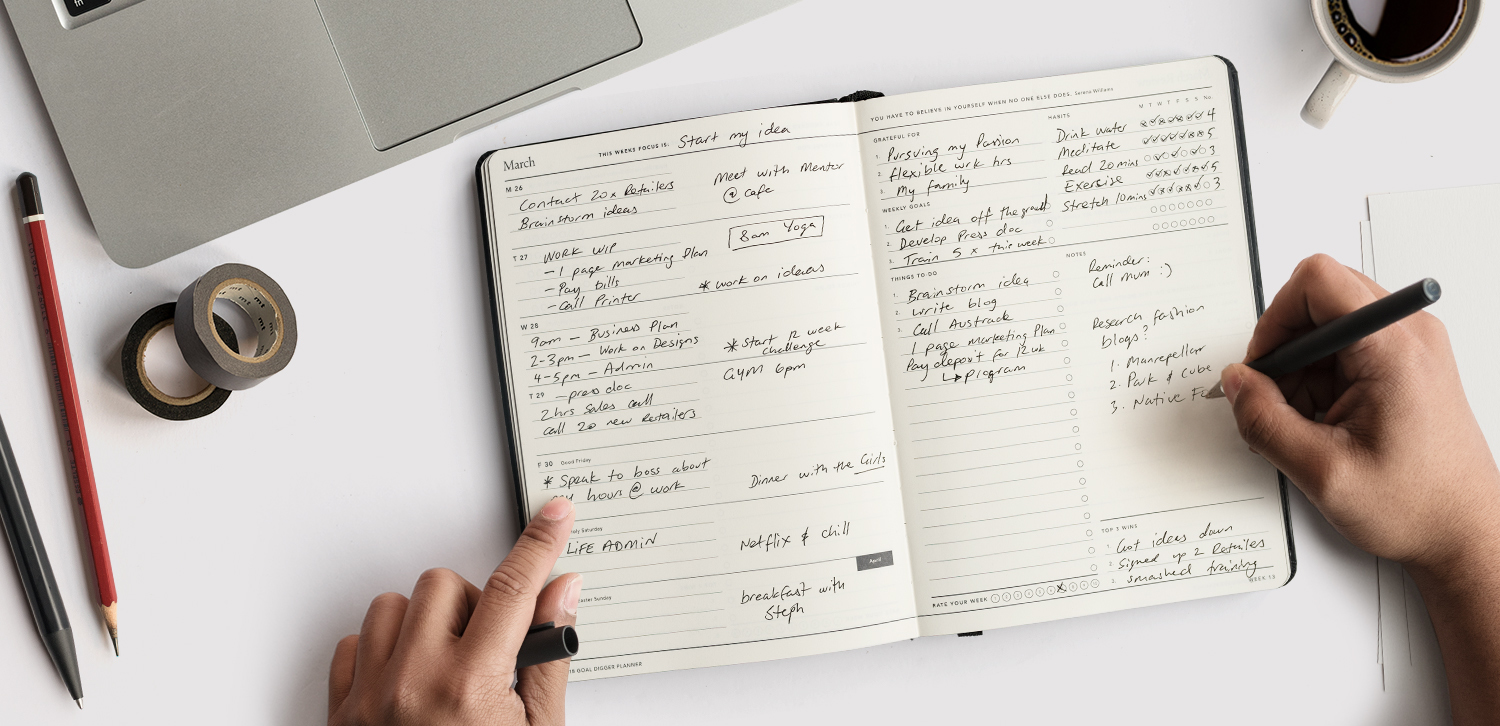 March
THIS WEEKS FOCUS IS: Start my idea
M 26
Contact 20x Retailers
Brainstorm ideas
Meet with Mentor
@ cafe
T 27
WORK WIP
- 1 page marketing Plan
- Pay bills
- Call Printer
8am Yoga
* work on ideas
W 28
9am - Business Plan
2-3pm - Work on Designs
4-5pm - Admin
- press doc
* Start 12 week
challenge
GYM 6pm
T 29
2hrs Sales call
call 20 new Retailers
F 30 Good Friday
* Speak to boss about
hours @ work
Dinner with the Girls
Saturday
LIFE ADMIN
Netflix & chill
April
Easter Sunday
breakfast with
Steph
18 GOAL DIGGER PLANNER
YOU HAVE TO BELIEVE IN YOURSELF WHEN NO ONE ELSE DOES. Serena Williams
GRATEFUL FOR
1. Pursuing my Passion
2. flexible wrk hrs
3. My family
HABITS
M T W T F S S No.
Drink water 4
Meditate 5
Read 20mins 3
Exersise 5
Stretch 10mins 3
WEEKLY GOALS
1. Get idea off the ground
2. Develop Press doc
3. Train 5 x this week
THINGS TO-DO
1. Brainstorm idea
2. write blog
3. Call Austrade
1 page marketing Plan
Pay deposit for 12wk
↳ Program
NOTES
Reminder:
Call mum :)
Research fashion
blogs?
1. Manrepeller
2. Park & Cube
3. Native
TOP 3 WINS
1. Got ideas down
2. Signed up 2 Retailes
3. smashed training
RATE YOUR WEEK 1 2 3 4 5 6 7 8 9 10
WEEK 13
mt